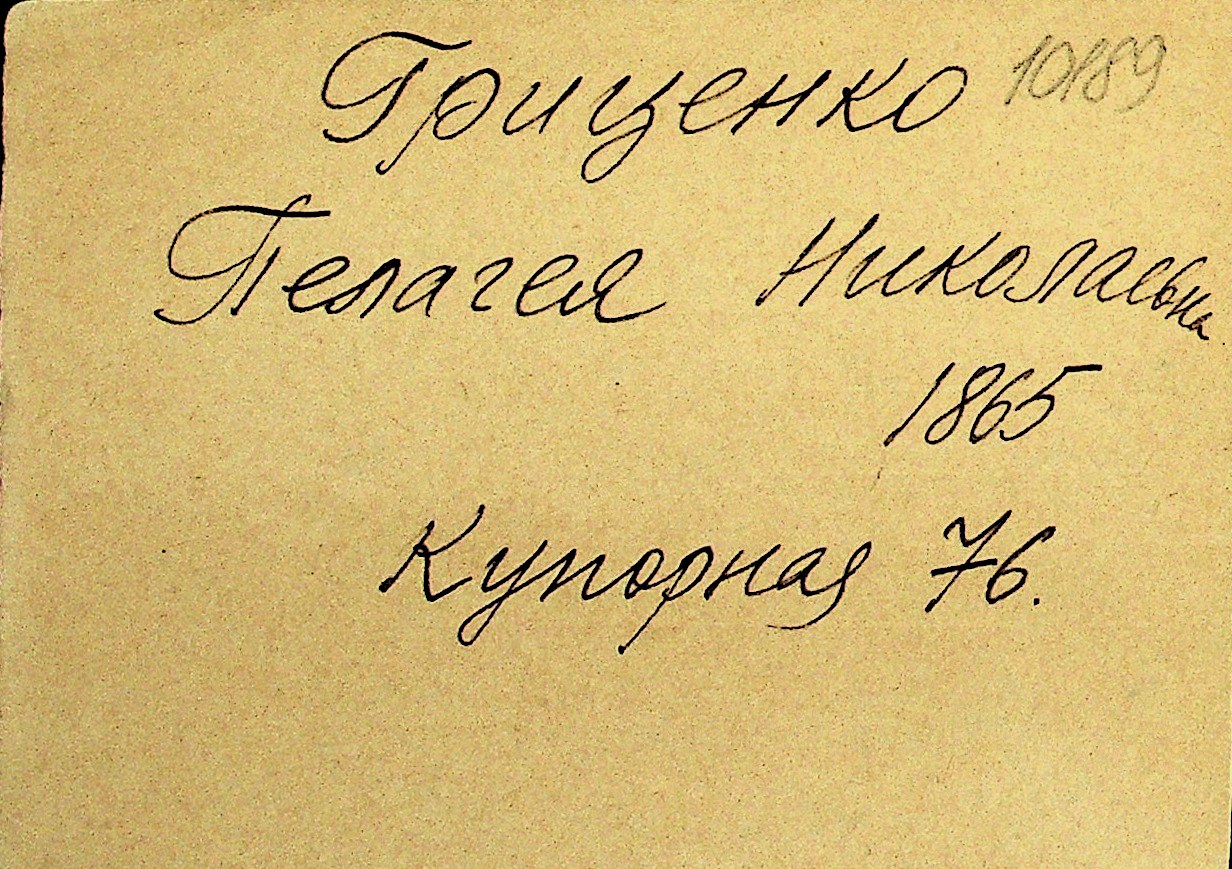 Гриценко 10/89
Пелагея Николаевна
1865
Купорная 76.